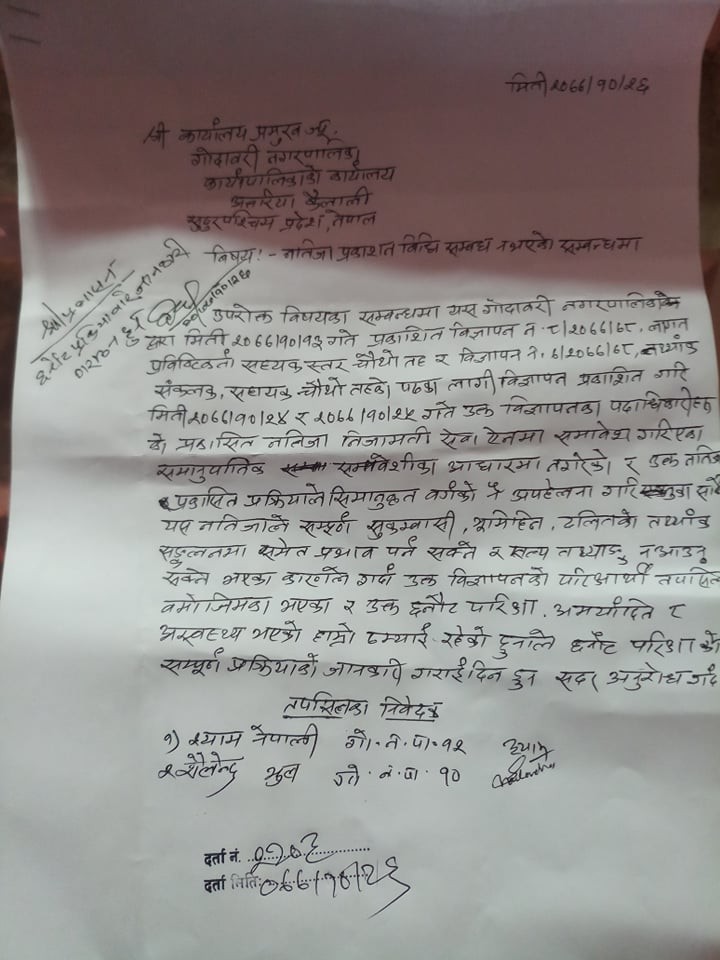 मिती २०७७/१०/२६
श्री कार्यालय प्रमुख ज्यू.
गोदावरी नगरपालिका
कार्यपालिकाको कार्यालय
अत्तरिया कैलाली
सुदुरपश्चिम प्रदेश, नेपाल
विषय:- नतिजा प्रकाशत विधि सम्बध नभएको सम्बन्धमा
उपरोक्त विषयका सम्बन्धमा यस गोदावरी नगरपालिका
द्वारा मिती २०७७/१०/१३ गते प्रकाशित विज्ञापन नं. ८/२०७७/७८,
सहयक स्तर चौथो तह र विज्ञापन नं. ७/२०७७/७८, तथ्यांक
संकलक, सहायक चौथो तहको पदका लागी विज्ञापन प्रकाशित गरि
मिती २०७७/१०/२४ र २०७७/१०/२५ गते उक्त विज्ञापनका
को प्रकासित नतिजा निजामती सेवा ऐनमा समावेश गरिएका
समानुपातिक समावेशीका आधारमा नगरेको र उक्त नतिजा
प्रकासित प्रक्रियाले सिमान्तकृत वर्गको नै अपहेलना
यस नतिजाले सम्पूर्ण सुकम्वासी, भूमिहिन, दलितको तथ्यांक
सङ्कलनमा समेत प्रभाव पर्न सक्ने र सत्य तथ्याङ्क नआउन
सक्ने भएका कारणले गर्दा उक्त विज्ञापनको परिक्षार्थी तपसिल
वमोजिमका भएका र उक्त छनौट परिक्षा. अमर्यादित र
अस्वस्थ्य भएको हाम्रो ठम्याई रहेको हुनाले छनौट परिक्षा को
सम्पूर्ण प्रक्रियाको जानकारी गराईदिन हुन सदर अनुरोध गर्द
तपसिलका निवेदक
१) श्याम नेपाली गो. न. पा. १२ श्याम
२ शैलेन्द्र भुल गो. न. पा. १०
दर्ता नं.
दर्ता मिति: ०७७/१०/२६